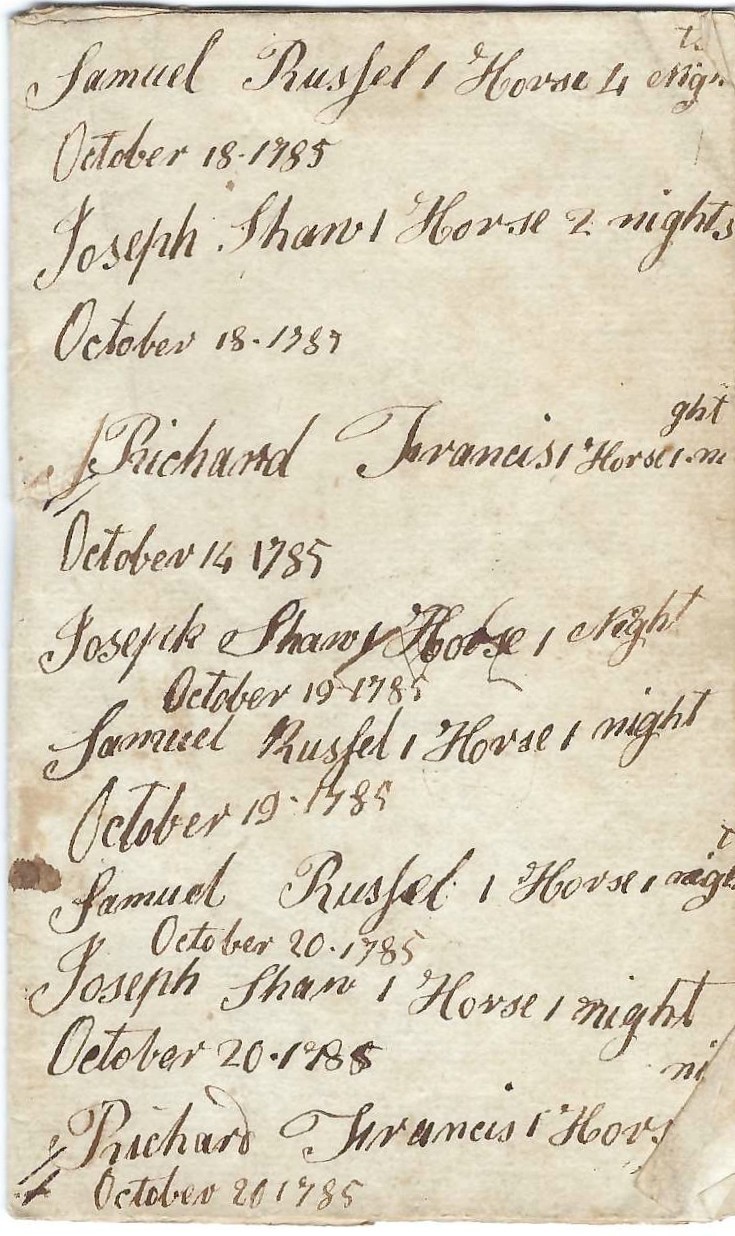 Samuel Rusſel 1 Horse 4 Night
October 18-1785
Joseph Shaw 1 Horse 2 nights
October 18-1785
Richard Francis 1 Horse 1 night
October 14 1785
Joseph Shaw 1 Horse 1 Night
October 19-1785
Samuel Rusſel 1 Horse 1 night
October 19-1785
Samuel Rusſel 1 Horse 1 night
October 20-1785
Joseph Shaw 1 Horse 1 night
October 20-1785
ni
Richard Francis 1 Hors
October 20 1785